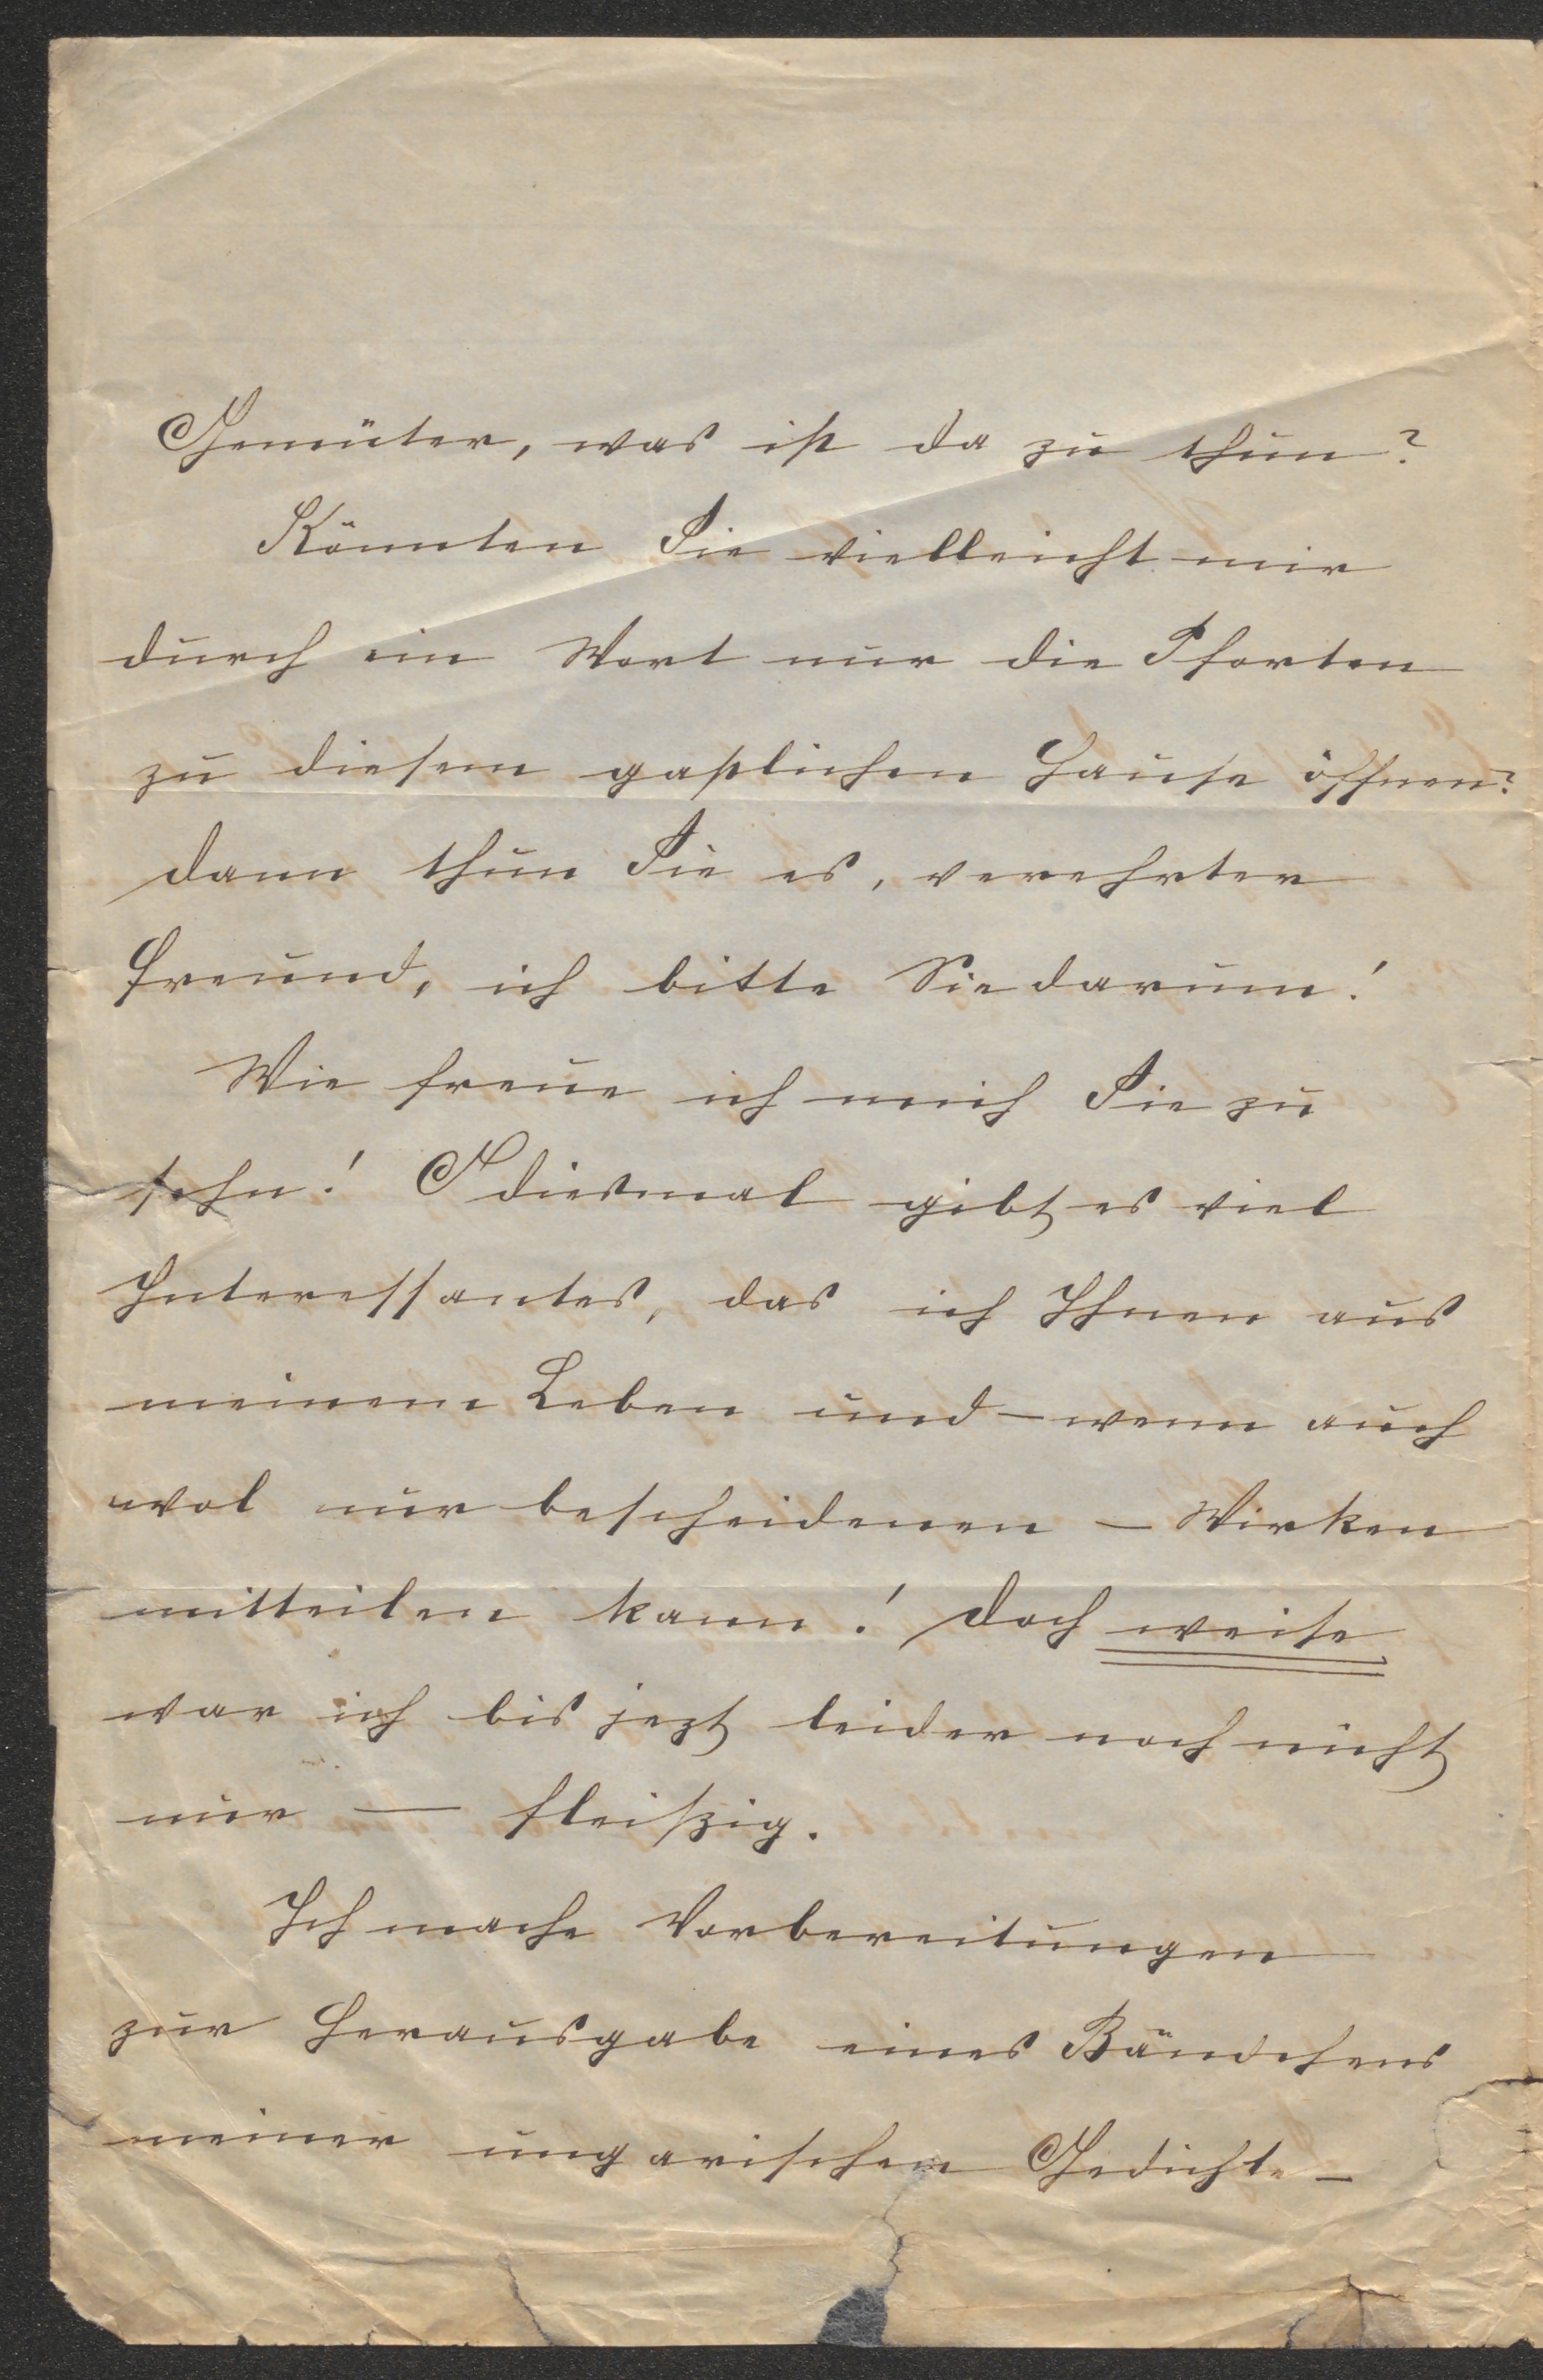 Gemüter, was ist da zu thun?
Könnten Sie vielleicht mir
durch ein Wort nur die Pforten
zu diesem gastlichen Hause öffnen?
dann thun Sie es, verehrter
Freund, ich bitte Sie darum!
Wie freue ich mich Sie zu
sehn! O diesmal gibt es viel
Interessantes, das ich Ihnen aus
meinem Leben und – wenn auch
wol nur bescheidenen – Wirken
mitteilen kann! doch weise
war ich bis jezt leider noch nicht
nur — fleißig.
Ich mache Vorbereitungen
zur Herausgabe eines Bändchens
meiner ungarischen Gedichte –